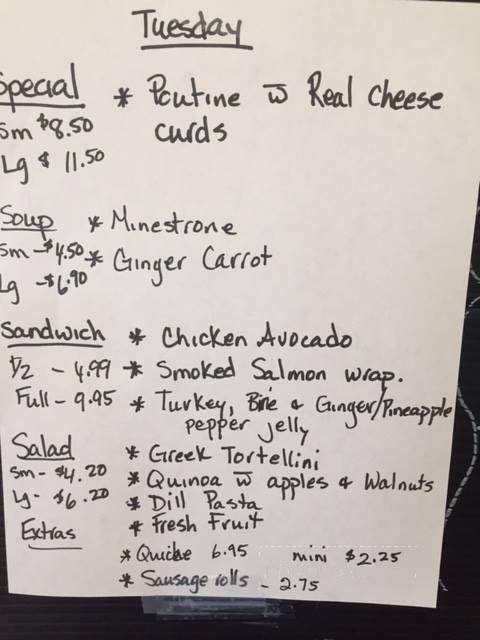 Tuesday
Special * Poutine w̅ Real Cheese
Sm $8.50 curds
Lg $ 11.50
Soup * Minestrone
Sm - $4.50 * Ginger Carrot
Lg - $6.90
Sandwich * Chicken Avocado
1/2 - 4.99 * Smoked Salmon wrap.
Full - 9.95 * Turkey, Brie & Ginger/Pineapple
pepper jelly
Salad * Greek Tortellini
Sm - $4.20 * Quinoa w̅ apples & Walnuts
Lg - $6.20 * Dill Pasta
Extras * Fresh Fruit
* Quiche 6.95 mini $2.25
* Sausage rolls - 2.75